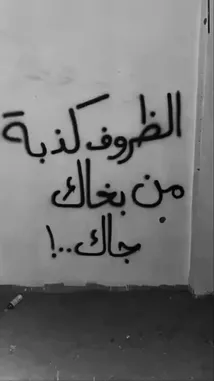 الظروف كذبة
من بغاك
جاك..!